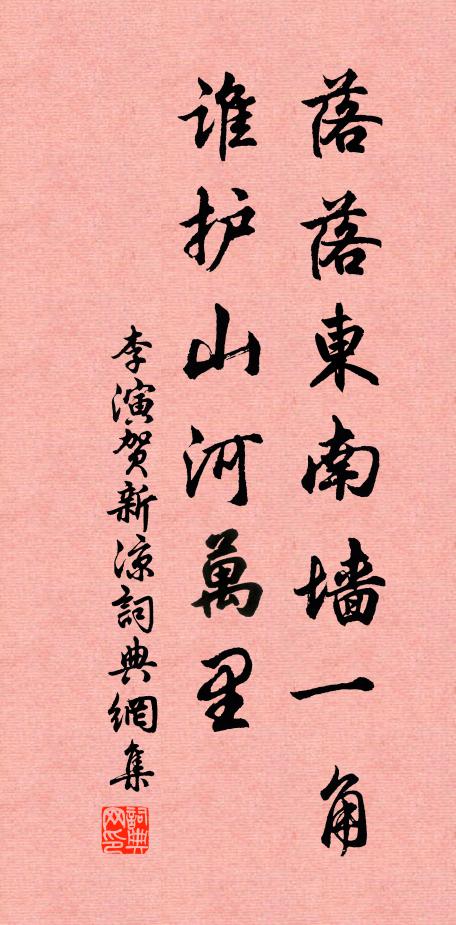 落落東南墙一角
谁护山河萬里
李演贺新凉詞典網集
詞典网印